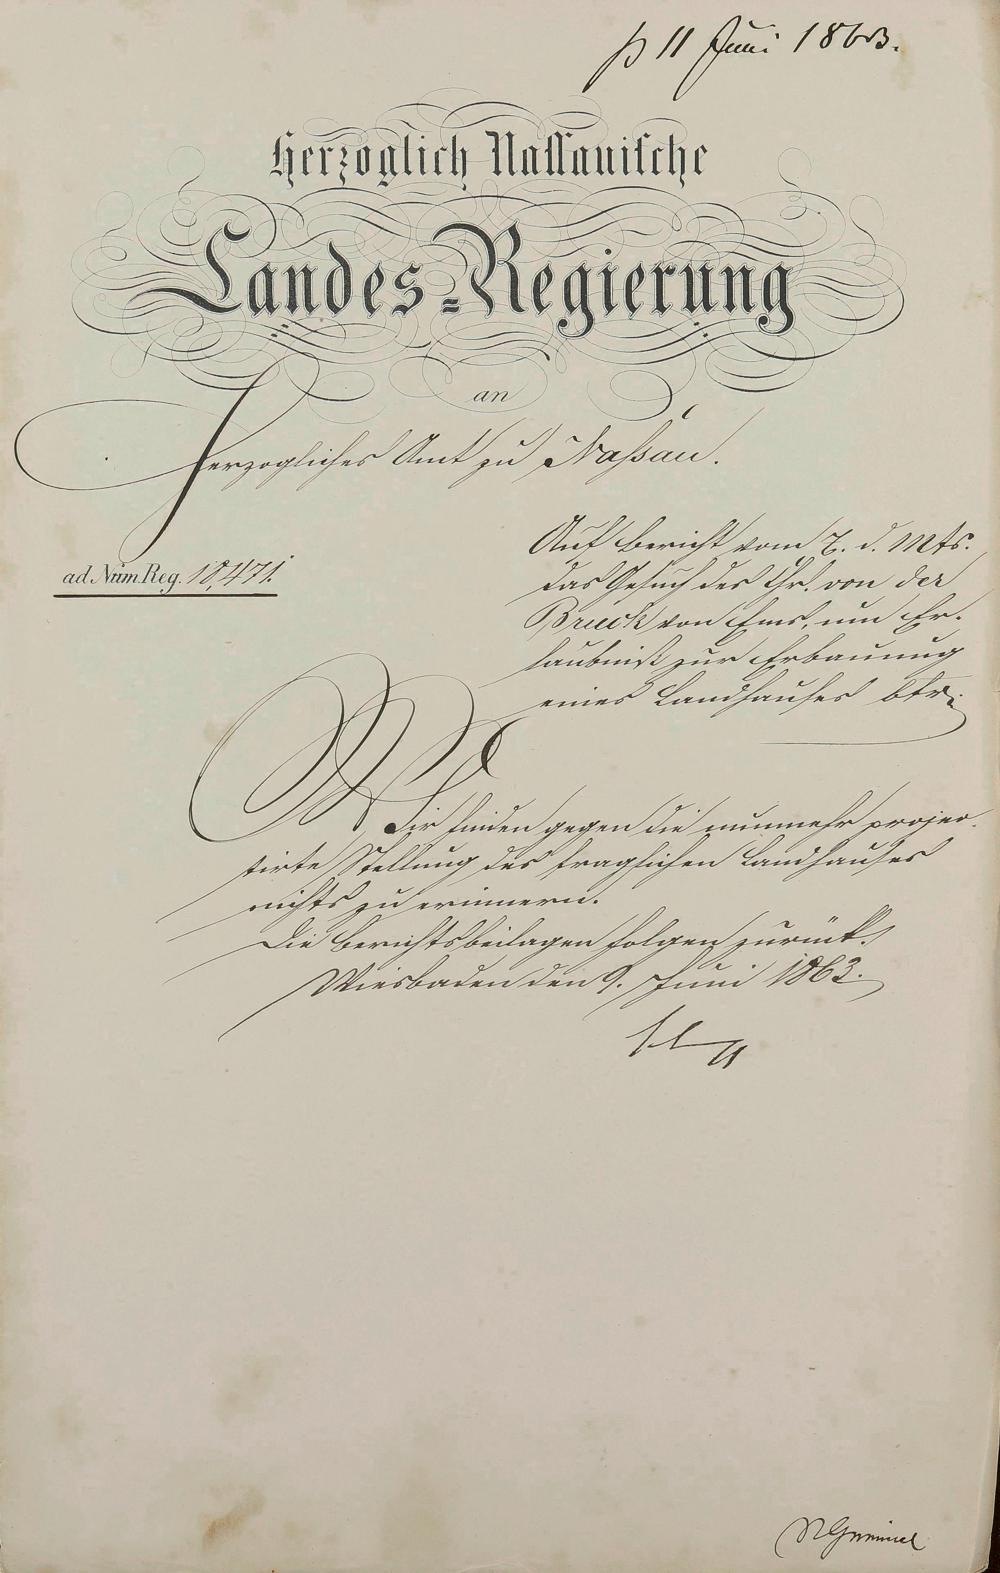 11 Juni 1863.
Herzoglich Nassauische
Landes-Regierung
an
Herzogliches Amt zu Nassau.
ad Num. Reg. 18,471.
Auf Bericht vom 7. d. Mts.
das Gesuch des Chr. von der
Bruck von Ems, um Er-
laubniß zur Erbauung
eines Landhauses btr.
Wir finden gegen die nunmehr projec-
tirte Stellung des fraglichen Landhauses
nichts zu erinnern.
Die Berichtsbeilagen folgen zurück.
Wiesbaden den 9. Juni 1863.